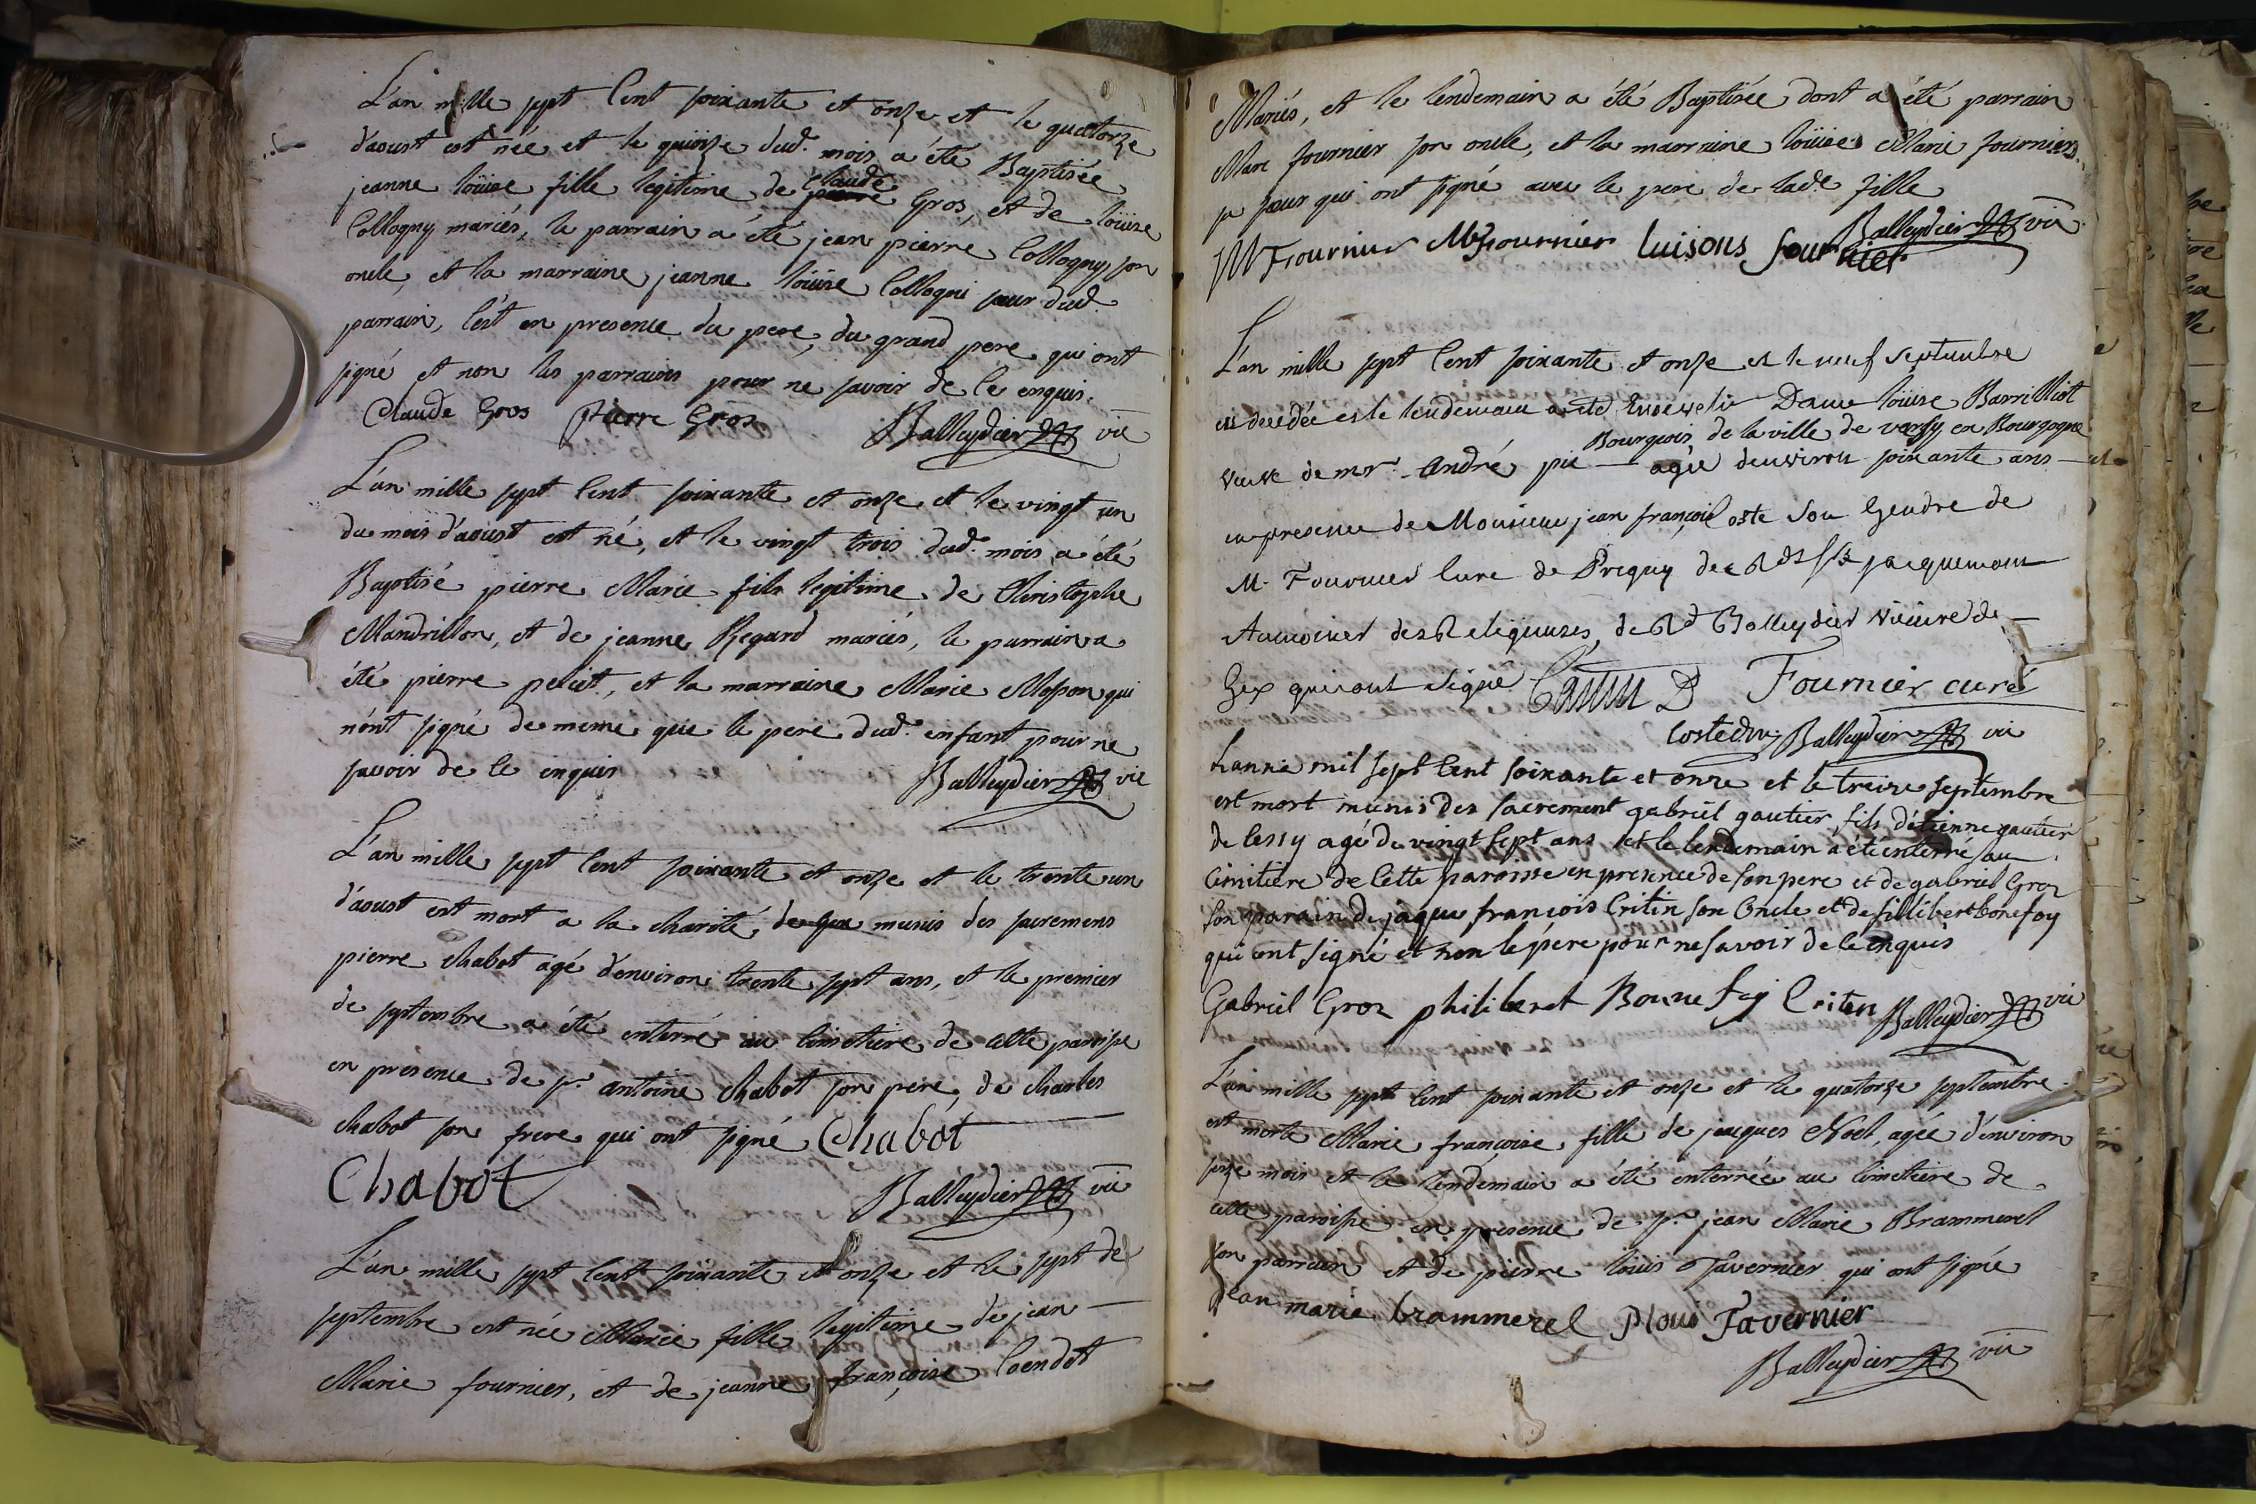 L'an mille sept Cent soixante et onze et le quatorze
d'aoust est née et le quinze dud. mois a été Baptisée
jeanne loüise fille legitime de claude Gros, et de loüise
Collogny mariés, le parrain a été jean pierre Collogny son
oncle, et la marraine jeanne loüise Collogni sœur dud.
parrain, C'est en presence du pere, du grand pere qui ont
signé et non les parrains pour ne savoir de ce enquis.
Claude Gros pierre Gros Balleydier vic
L'an mille sept Cent soixante et onze et le vingt un
du mois d'aoust est né, et le vingt trois dud. mois a été
Baptisé pierre Marie fils legitime de Christophe
Mandrillon, et de jeanne Regard mariés, le parrain a
été pierre petit, et la marraine Marie Masson qui
n'ont signé de meme que le pere dud. enfant pour ne
savoir de ce enquis Balleydier vic
L'an mille sept Cent soixante et onze et le trente un
d'aoust est mort a la charité, munis des sacremens
pierre chabot agé d'environ trente sept ans, et le premier
de septembre a été enterré au Cimetiere de cette paroisse
en presence de sr. antoine chabot son pere, de charles
chabot son frere qui ont signé Chabot
Chabot Balleydier vic
L'an mille sept Cent soixante et onze et le sept de
septembre est née Marie fille legitime de jean
Marie fournier, et de jeanne françoise
Mariés, et le lendemain a été Baptisée dont a été parrain
Marc fournier son oncle, et la marraine loüise Marie fournier
sa sœur qui ont signé avec le pere de lade. fille
M Fournier M fournier luisons fournier Balleydier vic
L'an mille sept Cent soixante et onze et le neuf septembre
est decedée et le lendemain a eté Ensevelie Dame loüise Barrilliot
Bourgeois de la ville de verssy en Bourgogne
veuve de mr. André pic agée denviron soixante ans
en presence de Monsieur jean françois oste son Gendre de
M. Fournier Cure de Pregny de jacquemont
Aumonier des Religieuses, de Rd Balleydier vicaire de
Gex qui ont signé Fournier curé
Costedru Balleydier vic
L'année mil sept Cent soixante et onze et le treize septembre
est mort munis des sacrement gabriël gautier, fils d'étienne gautier
de Cessy agé de vingt sept ans et le lendemain a été enterré au
Cimitiere de Cette paroisse en presence de son pere et de gabriel Gros
son parain de jaque françois Critin son Oncle et de fillibert bonefoy
qui ont signé et non le pere pour ne savoir de ce enquis
Gabriel Gros philiberet Bonne foy Criten Balleydier vic
L'an mille sept Cent soixante et onze et le quatorze septembre
est morte Marie françoise fille de jacques Noel, agée d'environ
seize mois et le lendemain a été enterrée au Cimetiere de
cette paroisse en presence de sr. jean Marie Brammerel
son parrain et de pierre loüis Tavernier qui ont signé
Jean marie brammerel P loui Tavernier
Balleydier vic